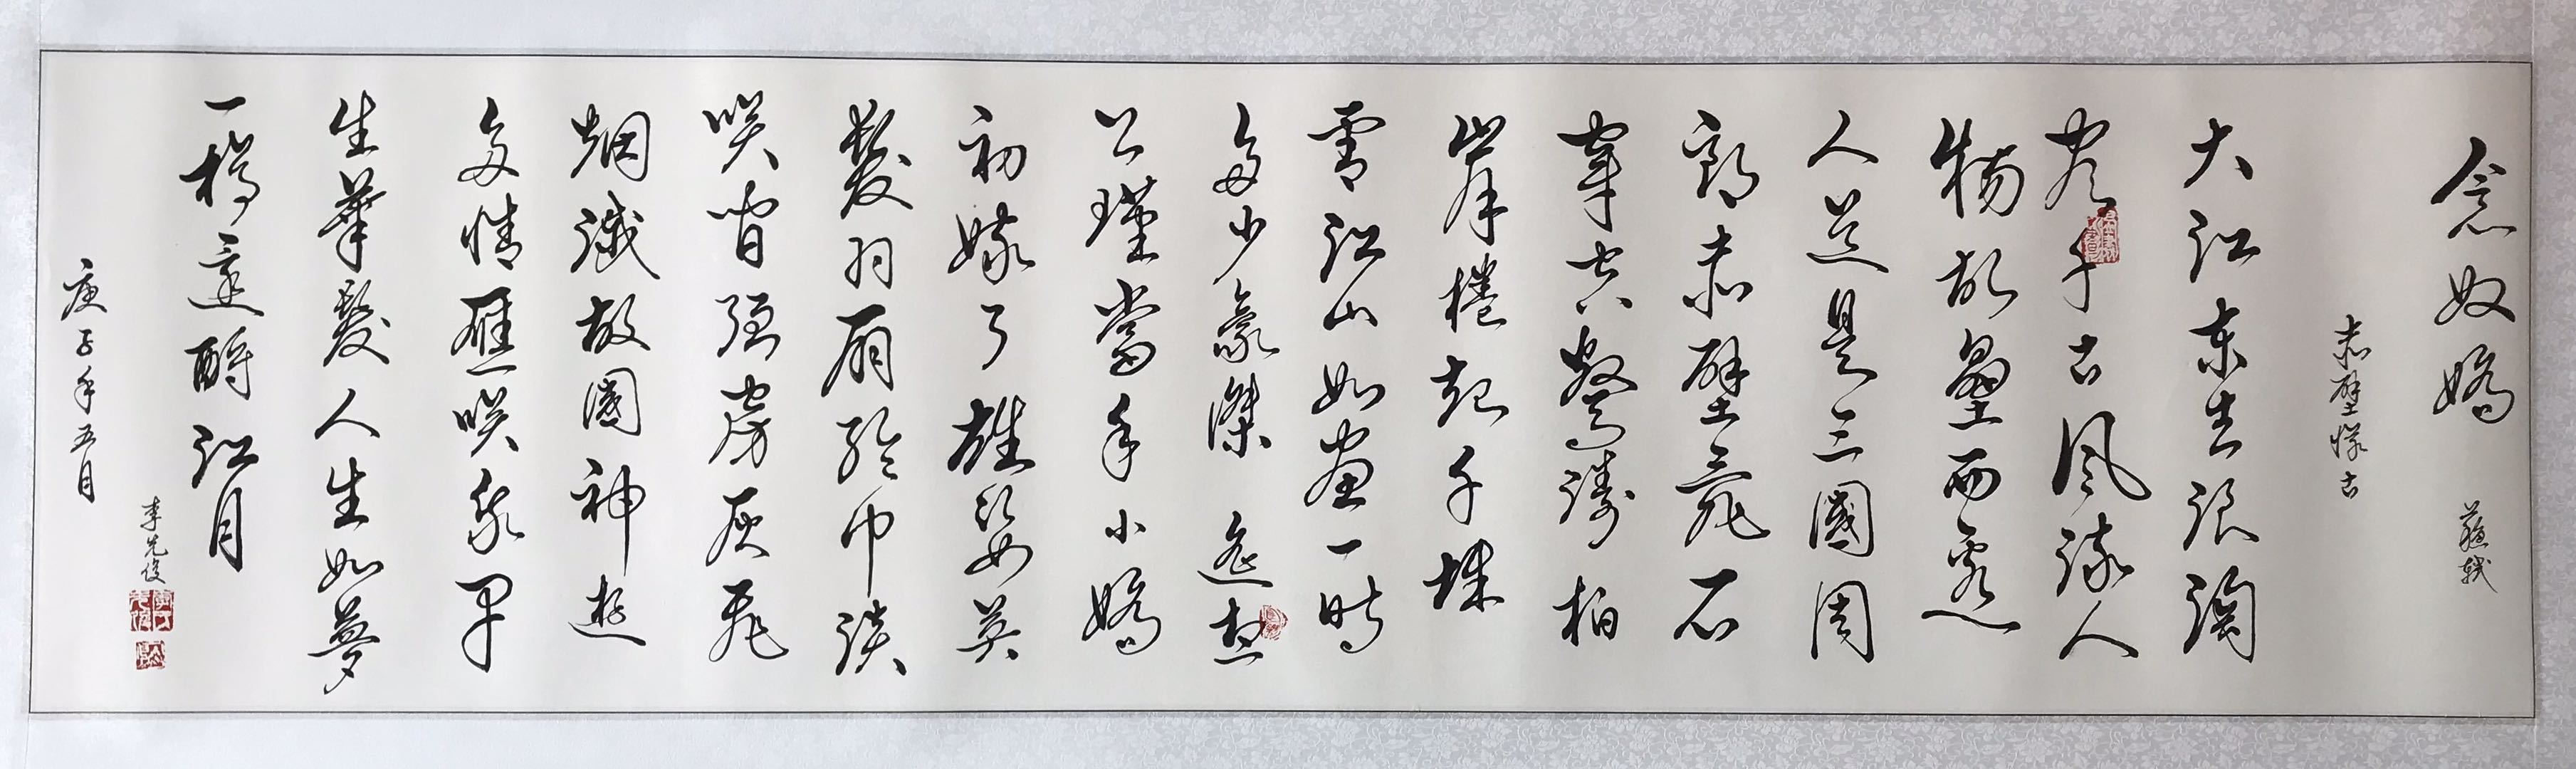 念奴嬌 蘇軾
赤壁懷古
大江東去浪淘
盡千古風流人
物故壘西邊
人道是三國周
郎赤壁亂石
穿空驚濤拍
岸捲起千堆
雪江山如畫一時
多少豪傑 遙想
公瑾當年小嬌
初嫁了雄姿英
發羽扇綸巾談
笑間強虜灰飛
烟滅故國神遊
多情應笑我早
生華髮人生如夢
一樽還酹江月
庚子年五月
李先俊